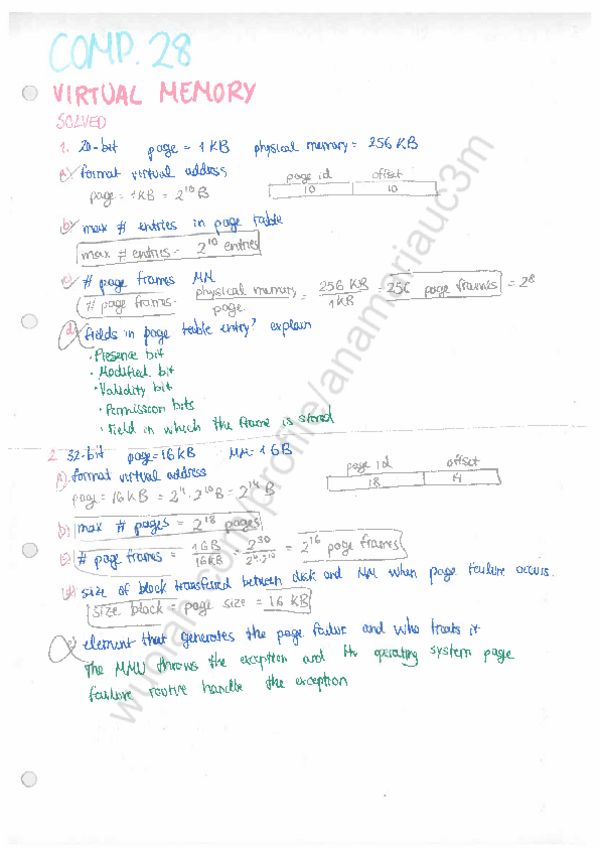 COMP. 28
VIRTUAL MEMORY
SOLVED
1. 20-bit page = 1KB physical memory = 256 KB
a) format virtual address
page id offset
10 10
page = 1KB = 2^10 B
b) max # entries in page table
max # entries = 2^10 entries
c) # page frames MM
# page frames = physical memory / page = 256 KB / 1KB = 256 page frames = 2^8
d) fields in page table entry? explain
· Presence bit
· Modified bit
· Validity bit
· Permission bits
· Field in which the frame is stored
2. 32-bit page=16KB MM=1GB
a) format virtual address
page id offset
18 14
page = 16KB = 2^4 · 2^10 B = 2^14 B
b) max # pages = 2^18 pages
c) # page frames = 1GB / 16KB = 2^30 / 2^4·2^10 = 2^16 page frames
d) size of block transfered between disk and MM when page failure occurs.
size block = page size = 16 KB
e) element that generates the page failure and who treats it
The MMU throws the exception and the operating system page
failure routine handle the exception
wuolah.com/profile/anamariauc3m